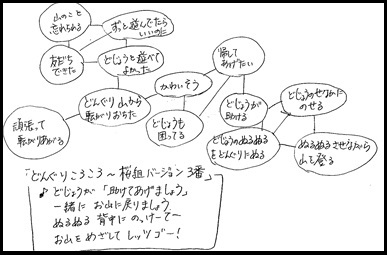 山のこと
忘れられる
ずっと遊んでたら
いいのに
友だち
できた。
どじょうと遊べて
よかった
かわいそう
帰して
あげたい
どんぐり 山から
転がりおちた
頑張って
転がりあがる
どじょうも
困ってる
どじょうが
助ける
どじょうのせなかに
のせる
どじょうのぬるぬる
をどんぐりにぬる
ぬるぬるさせながら
山を登る
「どんぐりころころ～桜組バージョン3番」
♪ どじょうが「助けてあげましょう」
一緒に お山に戻りましょう
ぬるぬる 背中に のっけーて～
お山を めざして レッツ ゴー！